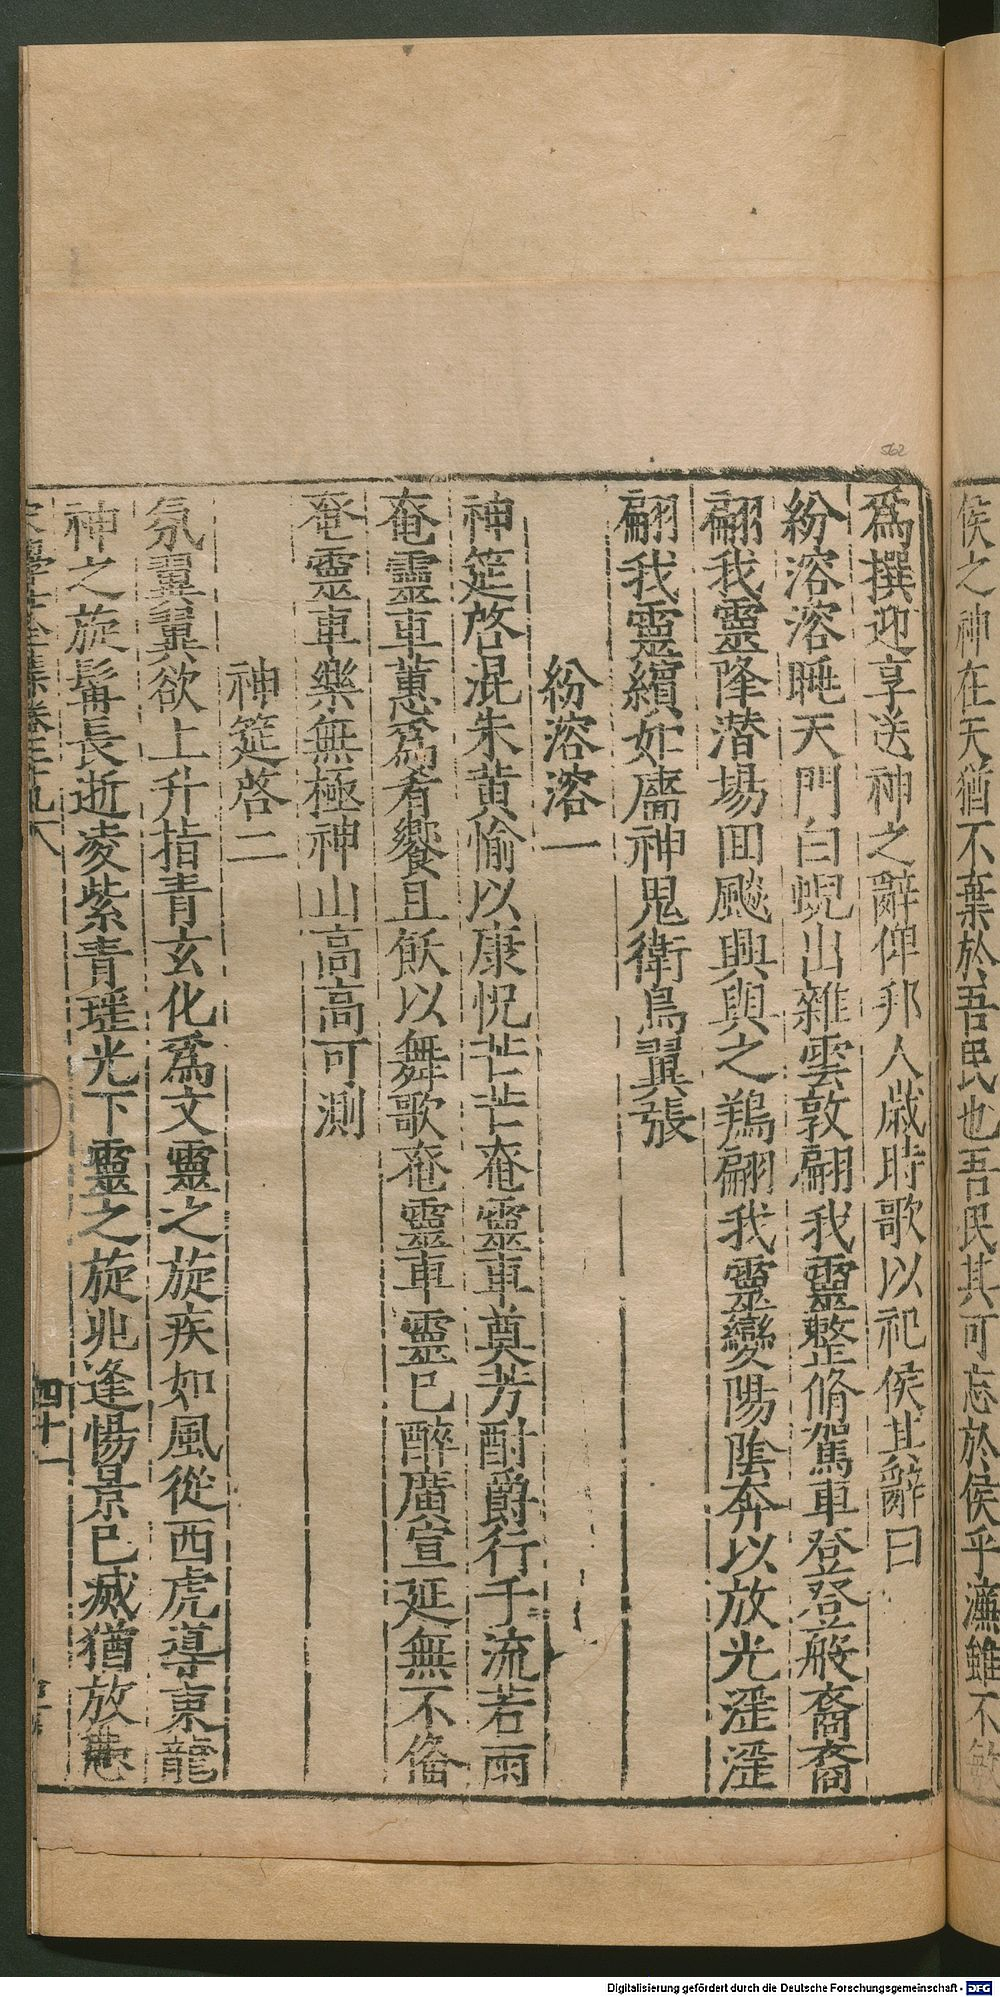 侯之神在天猶不棄於吾民也吾民其可忘於侯乎濂雖不敏
爲撰迎享送神之辭俾邦人歲時歌以祀侯其辭曰
紛溶溶䠷天門白蜺出雜雲敦翩我靈整脩駕車登登般裔裔
翩我靈降潛場回飈興與之鶈翩我靈變陽陰奔以放光淫淫
翩我靈繽如廧神鬼衛鳥翼張
紛溶溶一
神筵啓混朱黃愉以康怳芒芒奄靈車奠芳酎爵行千流若雨
奄靈車蕙爲肴饗且飫以舞歌奄靈車靈已醉廣宣延無不偹
奄靈車樂無極神山高高可測
神筵啓二
氛翼翼欲上升指青玄化爲文靈之旋疾如風從西虎導東龍
神之旋髯長逝凌紫青瑳光下靈之旋逃逢愓景已滅猶放
宋學士全集卷三十九六
四十一
562
Digitalisierung gefördert durch die Deutsche Forschungsgemeinschaft - DFG